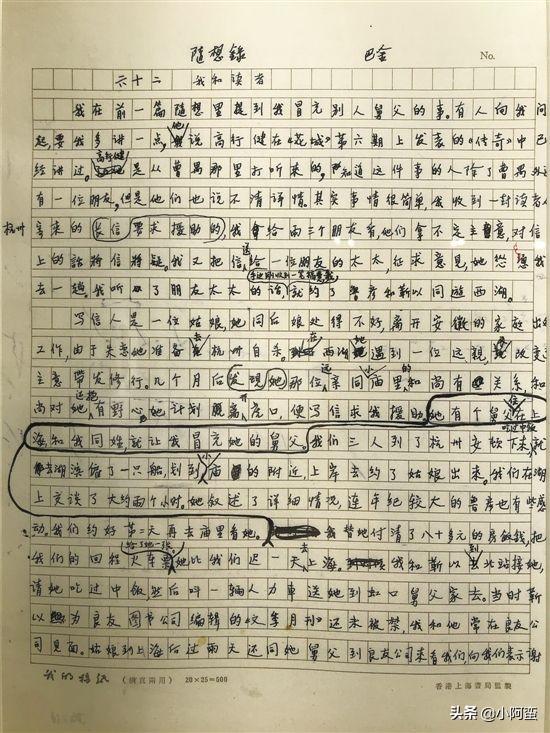 隨想錄 巴金 No.
六十二 我和读者
我在前一篇随想里提到我冒充别人舅父的事。有人向我问
起，要我多讲一点。他说高行健在《花城》第六期上发表的《传奇》中已
经讲过。高行健是从曹禺那里打听来的。知道这件事的人除了曹禺外还
有一位朋友。但是他们也说不清详情。其实事情很简单，我收到一封读者从
杭州寄来的长信要求援助的，我给两三个朋友看，他们拿不定主意，对信
上的话将信将疑。我又把信送给一位朋友的太太，征求意见，她怂恿我
去一趟。我听了朋友太太的话就约了鲁彦和靳以同游西湖。
写信人是一位姑娘，她同后娘处得不好，离开安徽的家庭出外
工作，由于失恋她准备去杭州自杀。在西湖她遇到一位远亲，改变
主意带发修行。几个月后发现她那位远亲同庙里的和尚有关系，和
尚对她还抱有野心，她计划离开虎口，便写信求我援助，她信有个舅父在上
海和我同姓，就让我冒充她的舅父。我们三人到了杭州安顿下来，吃过中饭就
去湖滨雇了一只船，划到小庙的附近，上岸去约了姑娘出来。我们在湖
上交谈了大约两个小时。她叙述了详细情况，连年纪较大的鲁彦也有些感
动。我们约好第二天再去庙里看她，我替她付清了八十多元的房饭钱，把
我们的回程火车票给了她一张。她比我们迟一天去上海，我和靳以到北站接她，
请她吃过中饭然后叫一辆人力车送她到虹口舅父家去。当时靳
以为良友图书公司编辑的《文季月刊》还未被禁，我和他常在良友公
司见面。姑娘到上海后过两天还同她舅父到良友公司来看我们，向我们表示谢
我的稿纸 (横直兩用) 20×25=500 香港上海書局監製
头条 @小阿蛮